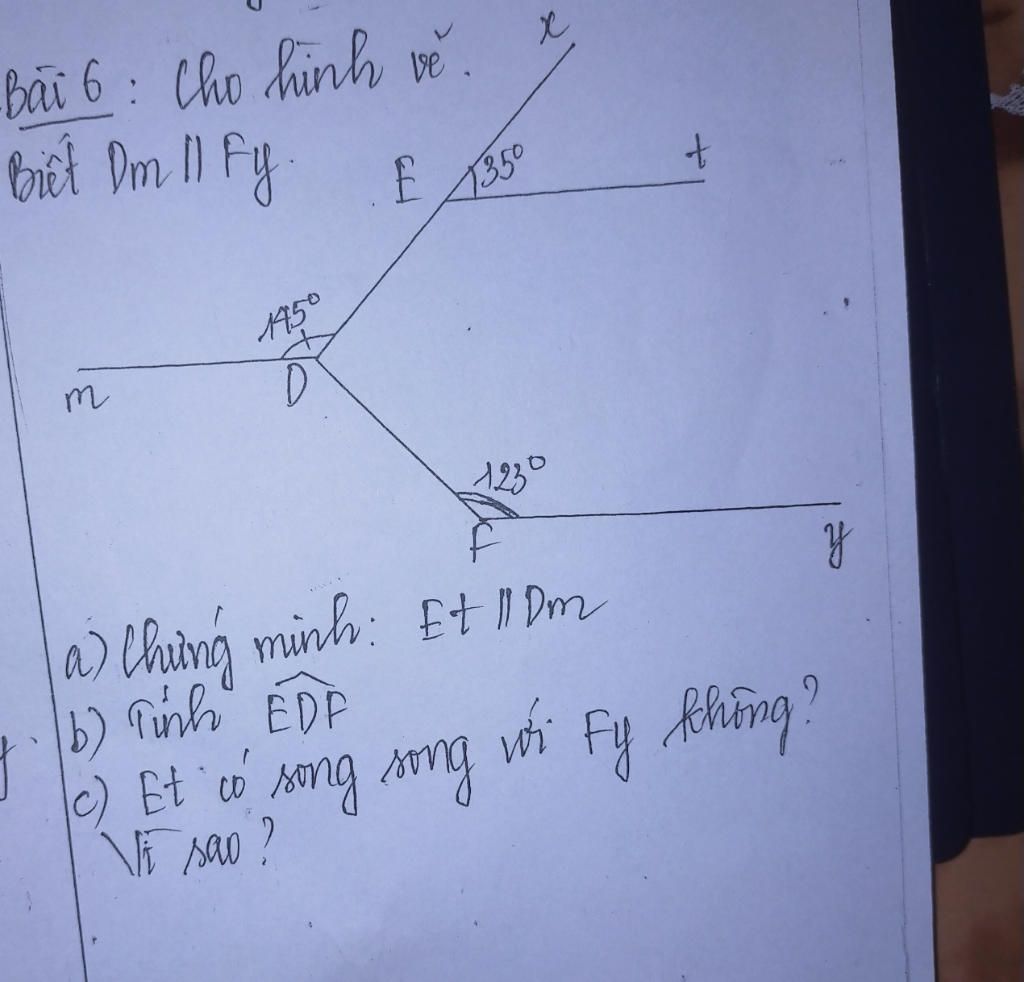 Bài 6: Cho hình vẽ.
Biết Dm // Fy.
x
E
35°
t
145°
m
D
123°
F
y
a) Chứng minh: Et // Dm
b) Tính \widehat{EDF}
c) Et có song song với Fy không?
Vì sao?